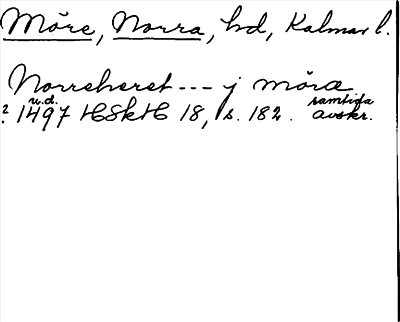 Möre, Norra, hd, Kalmar l.
Norreheret --- j möræ
? u.d. 1497 HSkH 18, s. 182. samtida avskr.